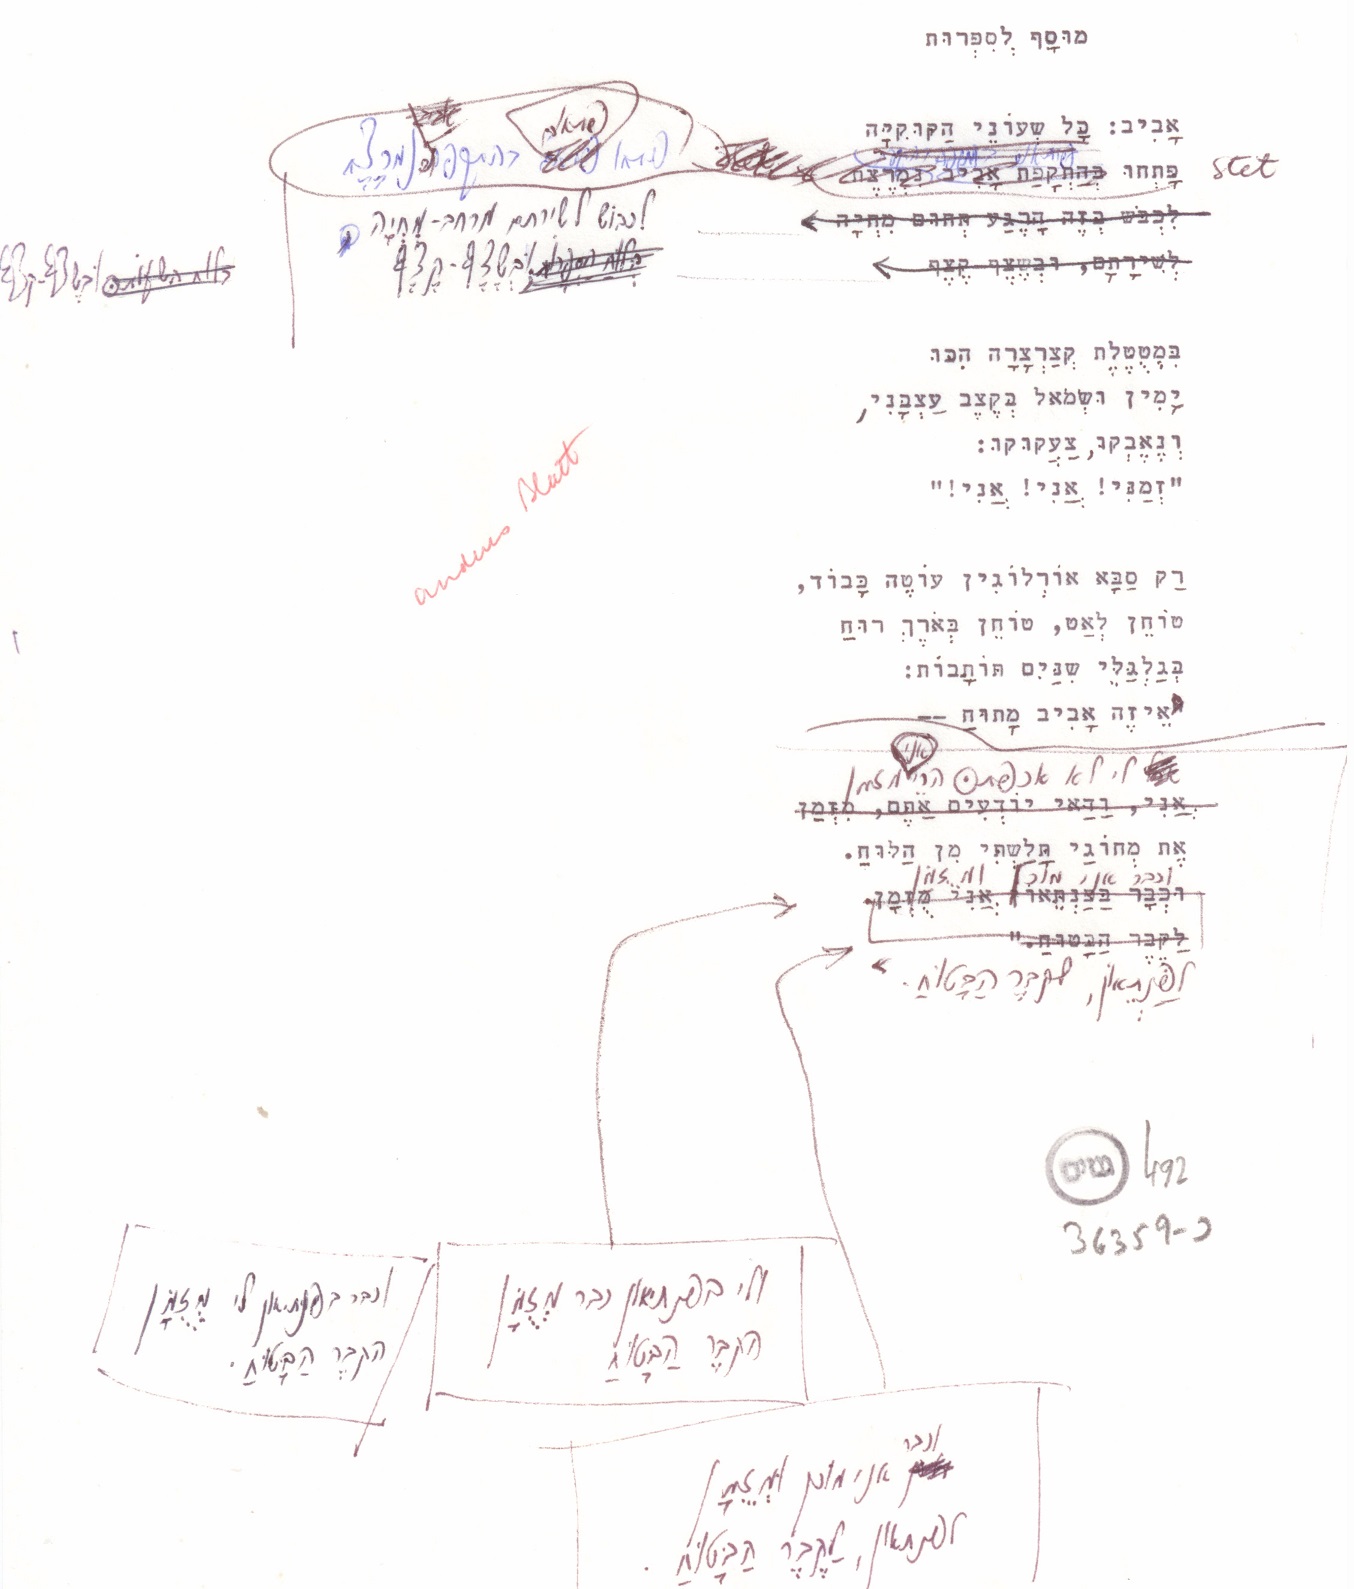 מוּסָף לְסִפְרוּת
אָבִיב: כָּל שְׁעוֹנֵי הַקּוּקִיָּה
פָּתְחוּ בְּהַתְקָפַת אָבִיב נִמְרֶצֶת
stet
לִכְבֹּשׁ בְּזֶה הָרֶגַע תְּחוּם מִחְיָה
לְשִׁירָתָם, וּבְשֶׁצֶף קֶצֶף
לכבוש לשירתם מרחב-מִחְיָה
וּבְשֶׁצֶף-קֶצֶף
וּבְשֶׁצֶף-קֶצֶף
בִּמְטֻטֶּלֶת קְצַרְצָרָה הִכּוּ
יָמִין וּשְׂמֹאל בְּקֶצֶב עַצְבָּנִי,
וְנֶאֶבְקוּ, צַעֲקוּקוּ:
"זְמַנִּי! אֲנִי! אֲנִי!"
anderes Blatt
רַק סַבָּא אוֹרְלוֹגִין עוֹטֶה כָּבוֹד,
טוֹחֵן לְאַט, טוֹחֵן בְּאֹרֶךְ רוּחַ
בְּגַלְגַּלֵּי שִׁנַּיִם תּוֹתָבוֹת:
"אֵיזֶה אָבִיב מָתוּחַ --
אני
לי לא אכפת הרי מזמן
אֲנִי, וַדַּאי יוֹדְעִים אַתֶּם, מִזְּמַן
אֶת מְחוֹגַי תָּלַשְׁתִּי מִן הַלּוּחַ.
וכבר אני מוכן ומְזֻמָּן
וּכְבָר בַּפַּנְתֵּאוֹן אֲנִי מְזֻמָּן
לַקֶּבֶר הַבָּטוּחַ."
לַפַּנְתֵּאוֹן, לקֶּבֶר הַבָּטוּחַ."
גנזים
492
36359-כ
וכבר בפנתיאון לי מְזֻמָּן
הקבֶר הַבָּטוּחַ.
ולי בפנתיאון כבר מְזֻמָּן
הקבֶר הַבָּטוּחַ
וכבר
אני מוכן וּמְזֻמָּן
לפנתאון, לַקֶּבֶר הַבָּטוּחַ.